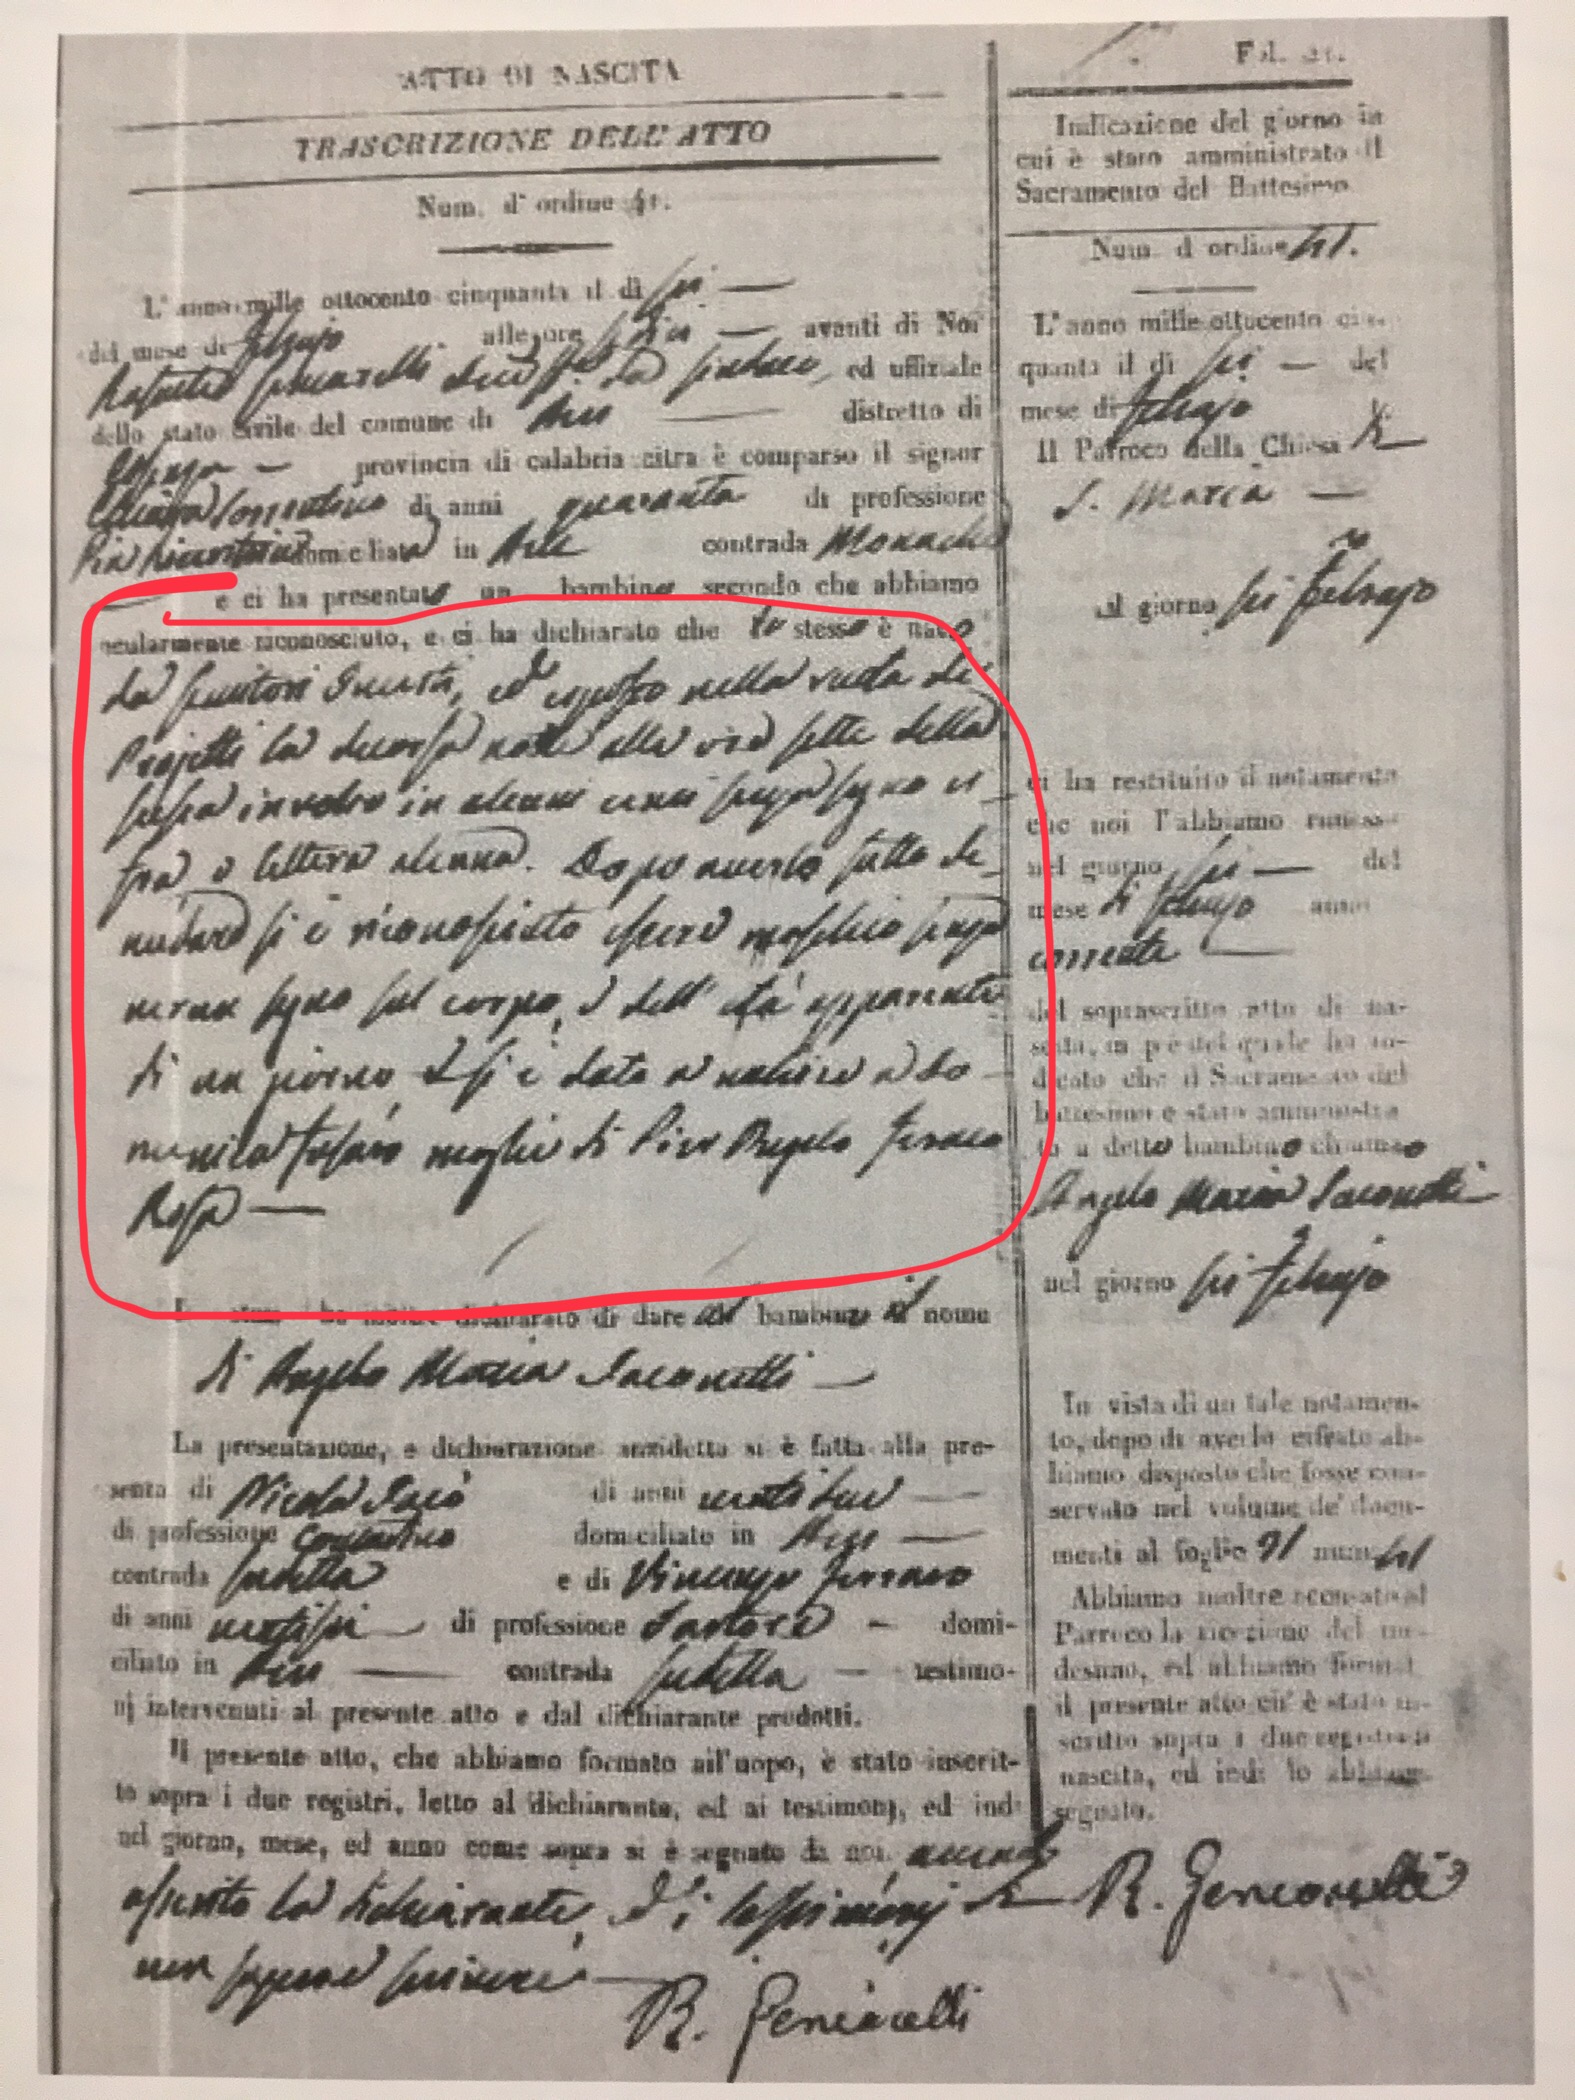 ATTO DI NASCITA
TRASCRIZIONE DELL' ATTO
Num. d' ordine 41.
L' anno mille ottocento cinquanta il di sei
del mese di Febrajo alle ore avanti di Noi
ed uffiziale
dello stato civile del comune di Acri distretto di
provincia di calabria citra è comparso il signor
di anni quaranta di professione
domiciliata in Acri contrada
e ci ha presentato un bambino secondo che abbiamo
ocularmente riconosciuto, e ci ha dichiarato che lo stesso è nato
da genitori Incerti, ed esposto nella ruota de
Projetti la decorsa notte alle ore sette della
stessa involto in alcuni cenci senza segno ci
fra, o lettera alcuna. Dopo averlo fatto de
nudare si è riconosciuto essere maschio senza
nerun segno sul corpo, e dell' età apparente
di un giorno, e si è dato a nutrire a Do
menica moglie di Pier Angelo Ferraro
Rosa
dichiarato di dare al bambino il nome
di Angelo Maria Iaconetti
La presentazione, e dichiarazione anzidetta si è fatta alla pre-
senza di Nicola di anni
di professione domiciliato in Acri
contrada e di Vincenzo Ferraro
di anni ventisei di professione Sartore domi-
ciliato in Acri contrada testimo-
nj intervenuti al presente atto e dal dichiarante prodotti.
Il presente atto, che abbiamo formato all'uopo, è stato inscrit-
to sopra i due registri, letto al dichiarante, ed ai testimonj, ed indi
nel giorno, mese, ed anno come sopra si è segnato da noi, avendo
asserito la dichiarante, ed i testimonj di
non sapere scrivere
R. Gencarelli
Fol. 21.
Indicazione del giorno in
cui è stato amministrato il
Sacramento del Battesimo
Num. d ordine 41.
L'anno mille ottocento cin-
quanta il di sei del
mese di Febrajo
Il Parroco della Chiesa di
S. Maria
al giorno sei Febrajo
ci ha restituito il notamento
che noi l'abbiamo rimesso
nel giorno sei del
mese di Febrajo anno
corrente
del soprascritto atto di na-
scita, in piè del quale ha in-
dicato che il Sacramento del
battesimo è stato amministra
to a detto bambino chiamato
Angelo Maria Iaconetti
nel giorno sei Febrajo
In vista di un tale notamen-
to, dopo di averlo cifrato ab-
biamo disposto che fosse con-
servato nel volume de' docu-
menti al foglio 91 num 41
Abbiamo inoltre accusato al
Parroco la ricezione del me-
desimo, ed abbiamo formato
il presente atto ch' è stato in-
scritto sopra i due registri di
nascita, ed indi lo abbiamo
segnato.
R. Gencarelli